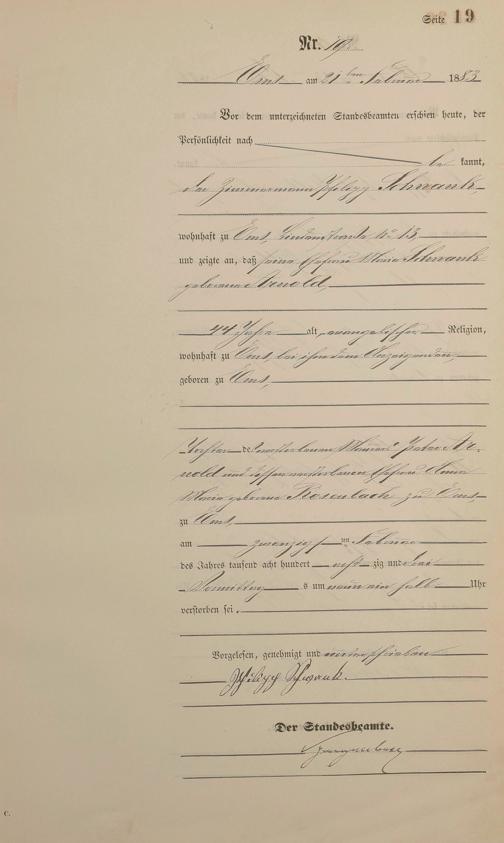 Seite 19
Nr. 19.
Ems am 21ten Februar 1883
Vor dem unterzeichneten Standesbeamten erschien heute, der
Persönlichkeit nach
be kannt,
der Zimmermann Philipp Schwank
wohnhaft zu Ems, No 13,
und zeigte an, daß seine Ehefrau Maria Schwank
geborene Arnold,
44 Jahre alt, evangelischer Religion,
wohnhaft zu Ems, bei ihm dem Anzeigenden,
geboren zu Ems,
Tochter des verstorbenen Peter Ar-
nold und dessen verstorbenen Ehefrau Anna
Maria geborene Rosenbach zu Ems
zu Ems,
am zwanzigsten Februar
des Jahres tausend acht hundert acht zig und drei
Vormittags um neun ein halb Uhr
verstorben sei.
Vorgelesen, genehmigt und unterschrieben
Philipp Schwank.
Der Standesbeamte.
C.